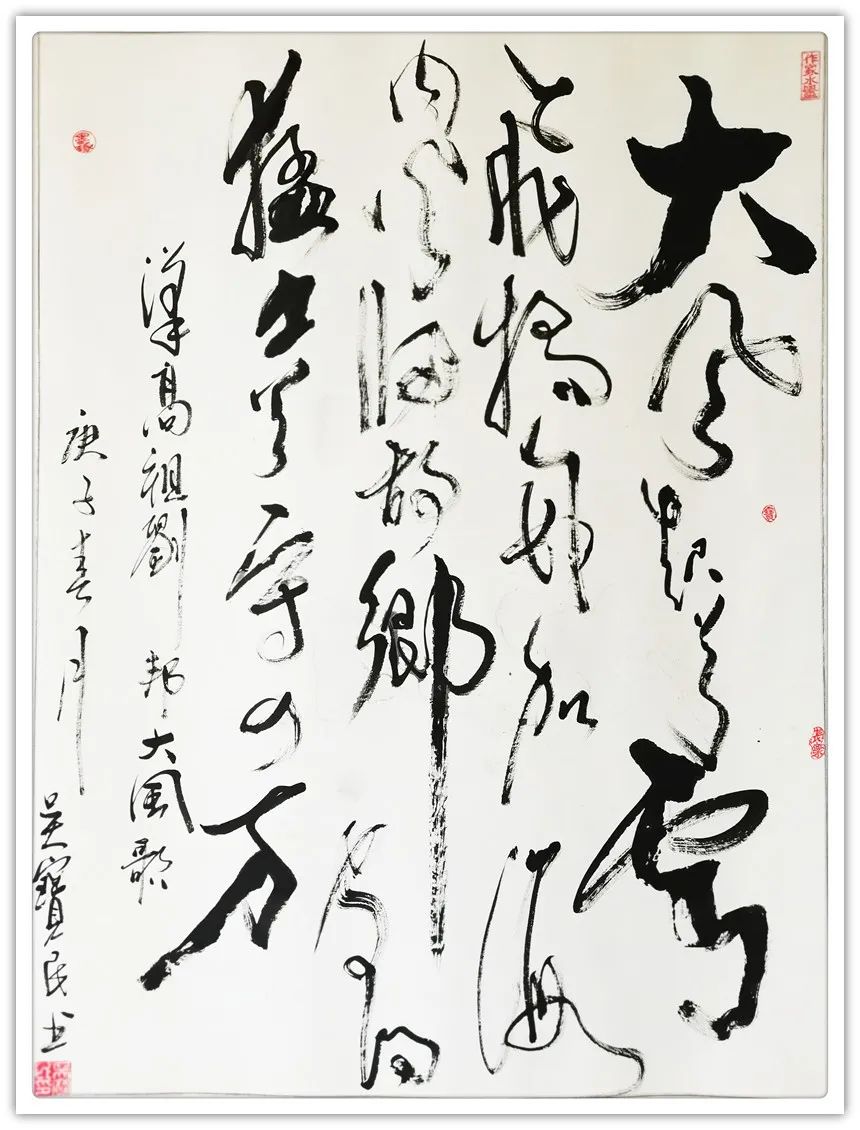 大風起兮雲
飛揚威加海
内兮歸故鄉安得
猛士兮守四方
漢高祖劉邦大風歌
庚子春月
吴寶民书